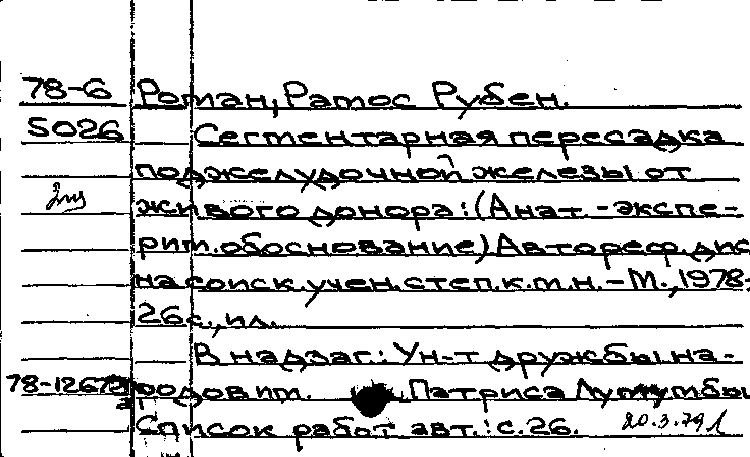 78-6 Роман, Рамос Рубен.
5026 Сегментарная пересадка
поджелудочной железы от
живого донора: (Анат.-экспе-
рим. обоснование) Автореф. дис
на соиск. учен. степ. к.м.н. - М., 1978.
26с., ил.
В надзаг.: Ун-т дружбы на-
родов им. Патриса Лумумбы
Список работ авт.: с.26. 20.3.79